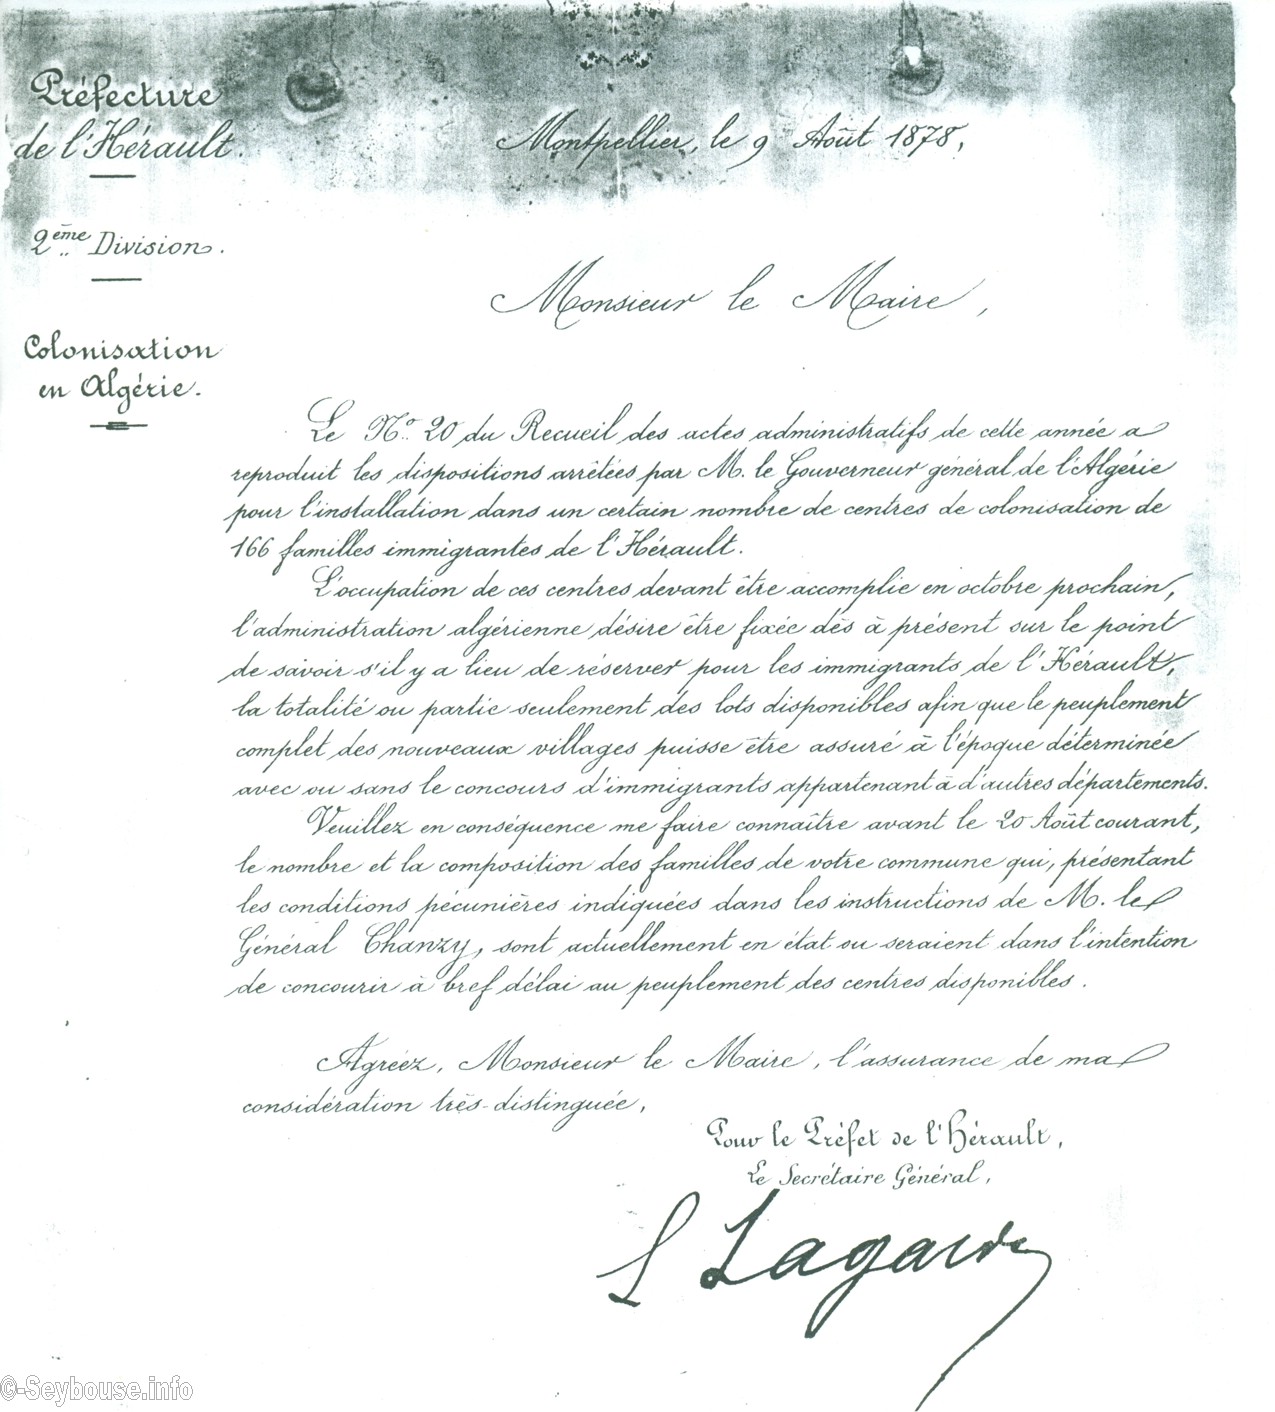 Préfecture
de l'Hérault.
Montpellier, le 9 Août 1878,
2ème Division.
Monsieur le Maire,
Colonisation
en Algérie.
Le No. 20 du Recueil des actes administratifs de cette année a
reproduit les dispositions arrêtées par M. le Gouverneur général de l'Algérie
pour l'installation dans un certain nombre de centres de colonisation de
166 familles immigrantes de l'Hérault.
L'occupation de ces centres devant être accomplie en octobre prochain,
l'administration algérienne désire être fixée dès à présent sur le point
de savoir s'il y a lieu de réserver pour les immigrants de l'Hérault,
la totalité ou partie seulement des lots disponibles afin que le peuplement
complet des nouveaux villages puisse être assuré à l'époque déterminée
avec ou sans le concours d'immigrants appartenant à d'autres départements.
Veuillez en conséquence me faire connaître avant le 20 Août courant,
le nombre et la composition des familles de votre commune qui, présentant
les conditions pécunières indiquées dans les instructions de M. le
Général Chanzy, sont actuellement en état ou seraient dans l'intention
de concourir à bref délai au peuplement des centres disponibles.
Agréez, Monsieur le Maire, l'assurance de ma
considération très-distinguée,
Pour le Préfet de l'Hérault,
Le Secrétaire Général,
L Lagarde
©-Seybouse.info